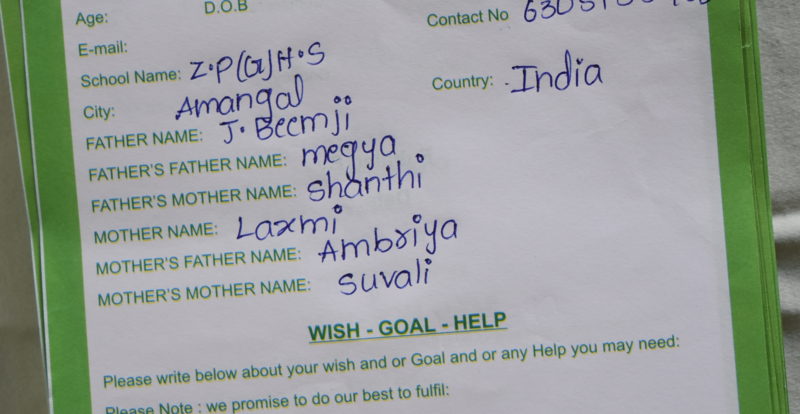 Age: D.O.B
Contact No
E-mail:
School Name: Z.P(G)H.S
City: Amangal Country: India
FATHER NAME: J. Beemji
FATHER'S FATHER NAME: megya
FATHER'S MOTHER NAME: Shanthi
MOTHER NAME: Laxmi
MOTHER'S FATHER NAME: Ambriya
MOTHER'S MOTHER NAME: Suvali
WISH - GOAL - HELP
Please write below about your wish and or Goal and or any Help you may need:
Please Note : we promise to do our best to fulfil: